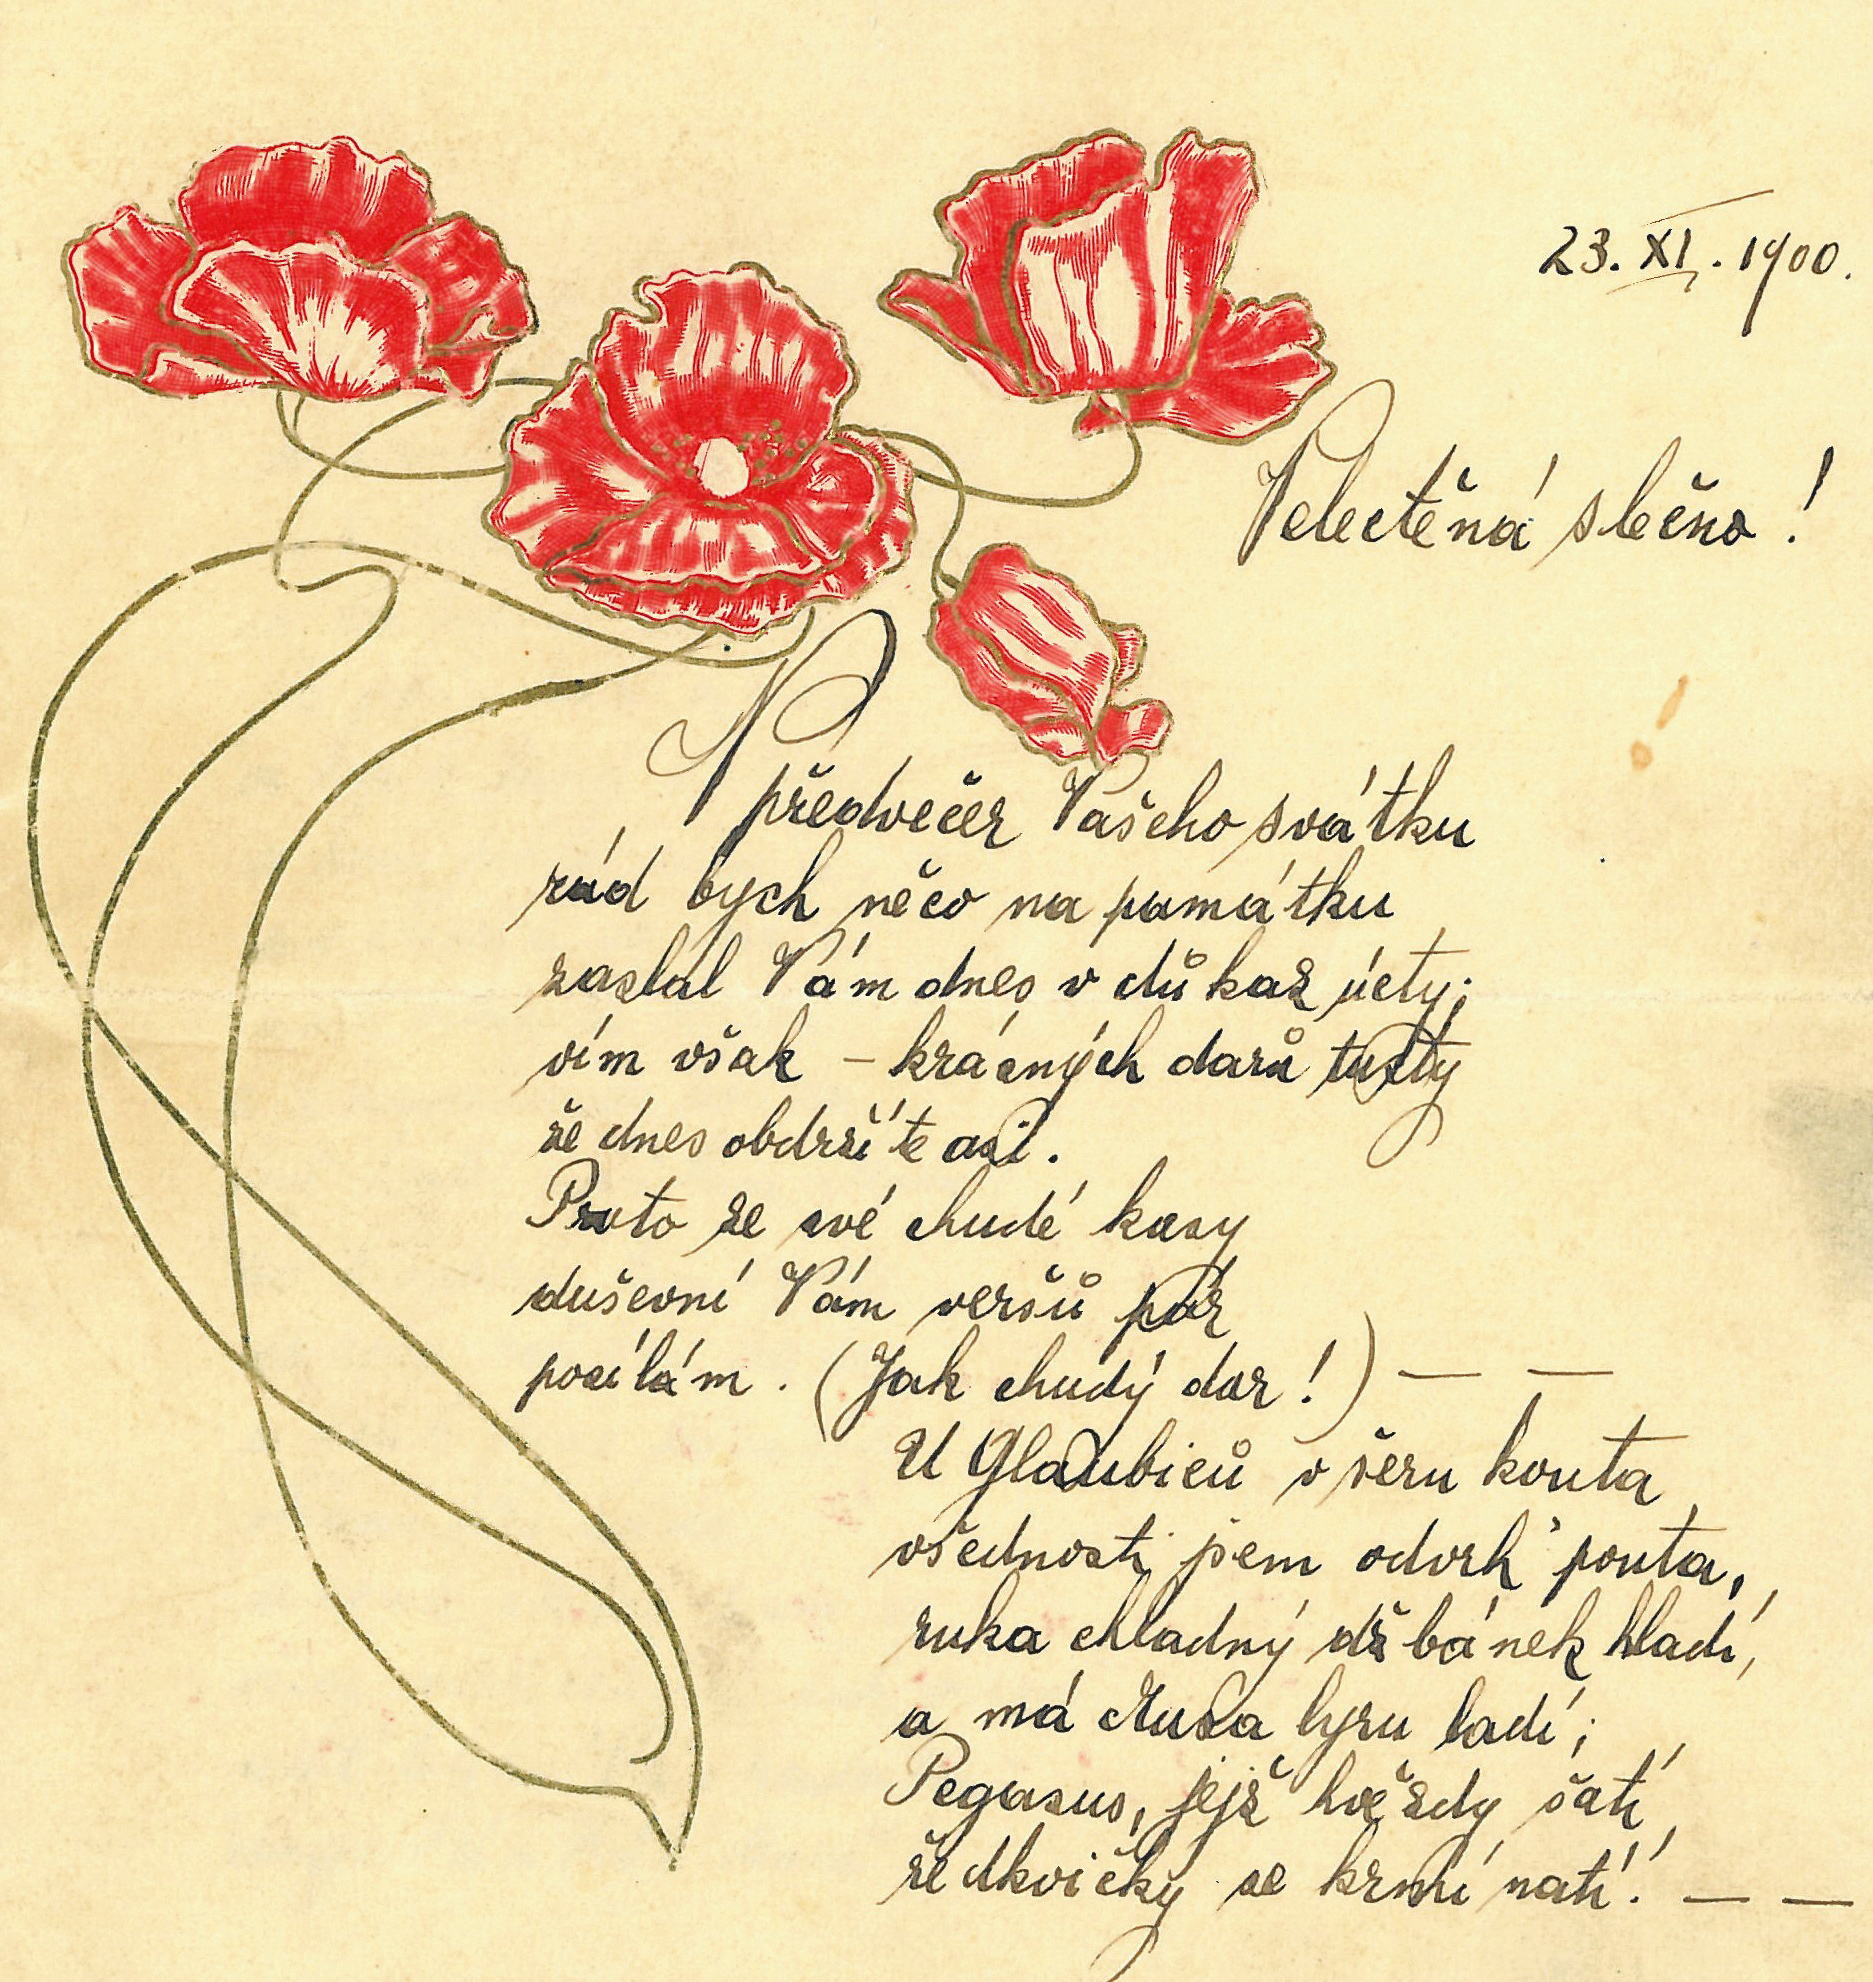 23. XI. 1900.
Velectěná slečno!
V předvečer Vašeho svátku
rád bych něco na památku
zaslal Vám dnes v důkaz úcty;
vím však – krásných darů tucty
že dnes obdržíte asi.
Proto ze své chudé kasy
duševní Vám veršů pár
posílám. (Jak chudý dar!) — —
U Glaubiců v šeru kouta
všednosti jsem odvrh' pouta,
ruka chladný džbánek hladí,
a má Musa lyru ladí;
Pegasus, jejž hvězdy šatí,
ředkvičky se krmí natí! — —